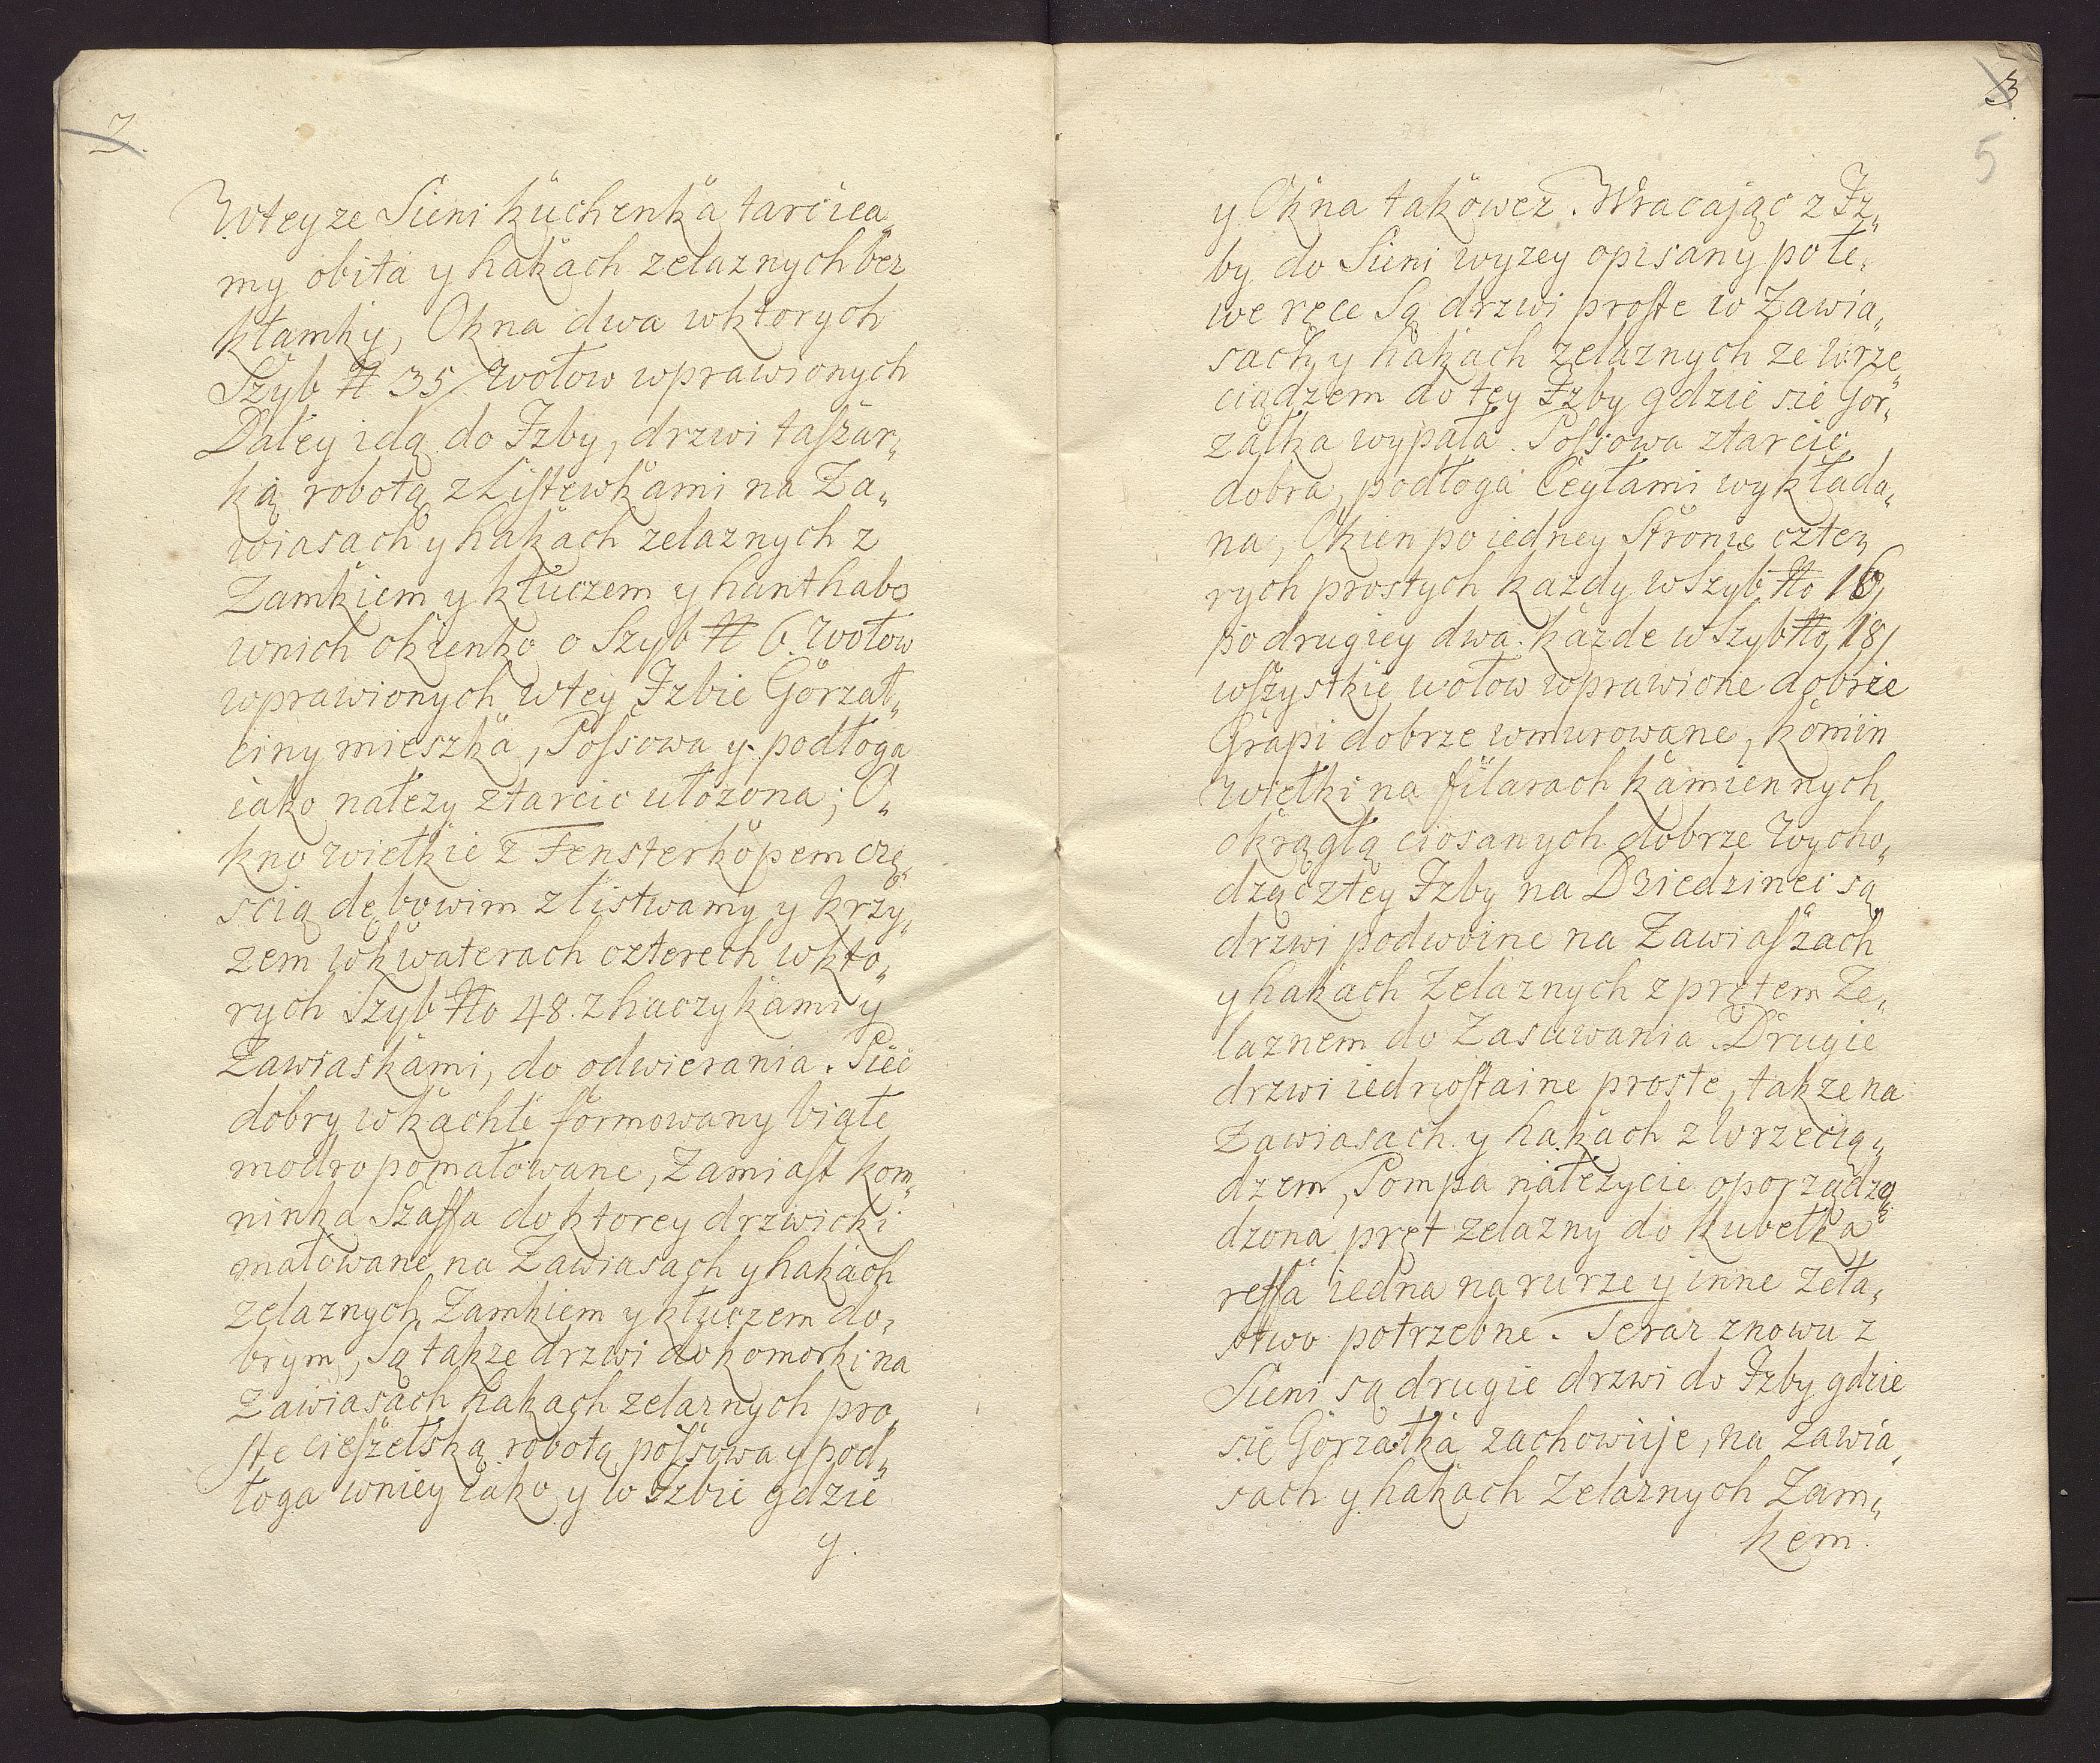 2.
Wteyze Sieni kuchenka tarcica„
my obita y hakach zelaznych bez
kłamky, Okna dwa wktorych
Szyb # 35 wołow wprawionych
Daley idą do Izby, drzwi taſzar„
ką robotą z Liſtewkami na Za„
wiasach y hakach zelaznych z
Zamkiem y kłuczem y hanthabo
wnich okienko o Szyb # 6. wołow
wprawionych wtey Izbie Gorzał„
ciny mieszka, Poſsowa y podłoga
iako nałezy ztarcic ułozona; O„
kno wiełkie z Fensterkopem czę„
scią dębowim z listwamy y krzy„
zem wkwaterach czterech wkto„
rych Szyb No 48. z haczykami y
Zawiaskami, do odwierania. Piec
dobry wkachle formowany białe
modro pomałowane, Zamiaſt kom„
ninka Szaffa do ktorey drzwicki
małowane na Zawiasach y hakach
zelaznych Zamkiem y kłuczem do„
brym, Są takze drzwi do komorki na
Zawiasach hakach zelaznych pro„
ſte cieſzelską robotą poſsowa y pod„
łoga wniey iako y w Izbie gdzie
y.
3.
5
y Okna takowez. Wracając z Iz„
by do Sieni wyzey opisany po łe„
we ręce Są drzwi proſte w Zawia„
sach y hakach zelaznych ze wrze„
ciądzem do tey Izby gdzie się Gor„
załka wypała. Poſsowa ztarcic
dobra, podłoga Cegłami wykłada„
na, Okien po iedney Stronie czte„
rych prostych kazdy w Szyb No 16,
po drugiey dwa kazde w Szyb No 18,
wſzystkie wołow wprawione dobrze
Grapi dobrze wmurowane, komin
Wiełki na filarach kamiennych
okrągłą ciosanych dobrze Wycho„
dzącztey Izby na Dziedziniec są
drzwi podwoine na Zawiaſzach
y hakach Zelaznych z prętem Ze„
laznem do Zasuwania. Drugie
drzwi iednoſtaine proste, takze na
Zawiasach y hakach z Wrzecią„
dzem, Pompa nałezycie oporządzo„
dzona pręt zelazny do kubełka
reffa iedna na rurze y inne zeła„
stwo potrzebne. Teraz znowu z
Sieni są drugie drzwi do Izby gdzie
się Gorzałka zachowuje, na zawia„
sach y hakach Zelaznych Zam„
kem.